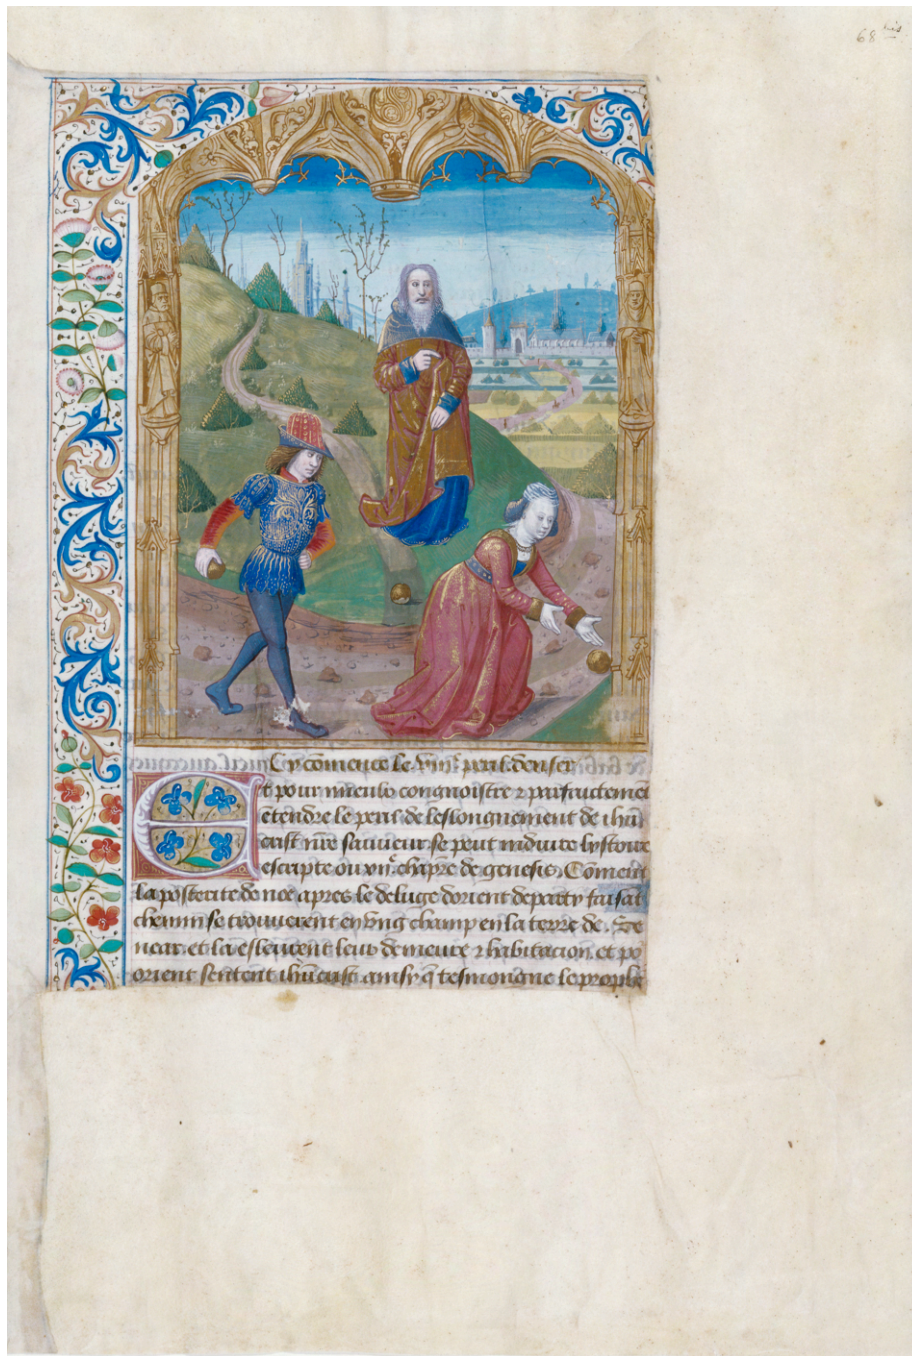 68 bis
Cy cōmence le viiie. peril denfer
Et pour mieulx congnoistre ⁊ prisfructemēt
ētendre le peril de leslongnement de ihū
crist nrē sauueur se peut induire lystoire
escripte ou xiie. chaprē de genesis. Cōment
la posterite de noe apres le deluge dorient departy faisāt
chemin se trouuerent en vng champ en la terre de. Se
near. et la esleurent leur demeure ⁊ habitacion. et po
orient sentent ihūcrist. ainsy q̄ tesmongne le prophē